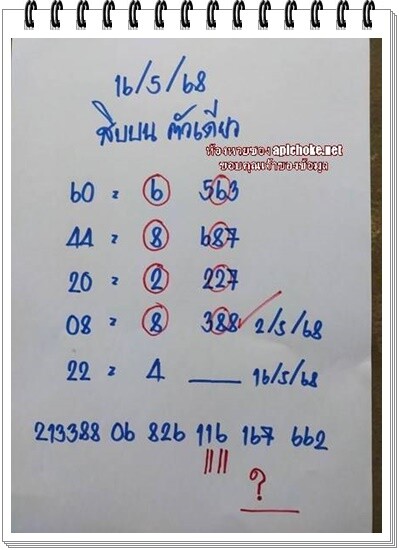 16/5/68
สิบบน ตัวเดียว
ห้องหวยของ apichoke.net
ขอบคุณเจ้าของข้อมูล
60 = 6 563
44 = 8 687
20 = 2 227
08 = 8 388 2/5/68
22 = 4 ___ 16/5/68
213388 06 826 116 167 662
?